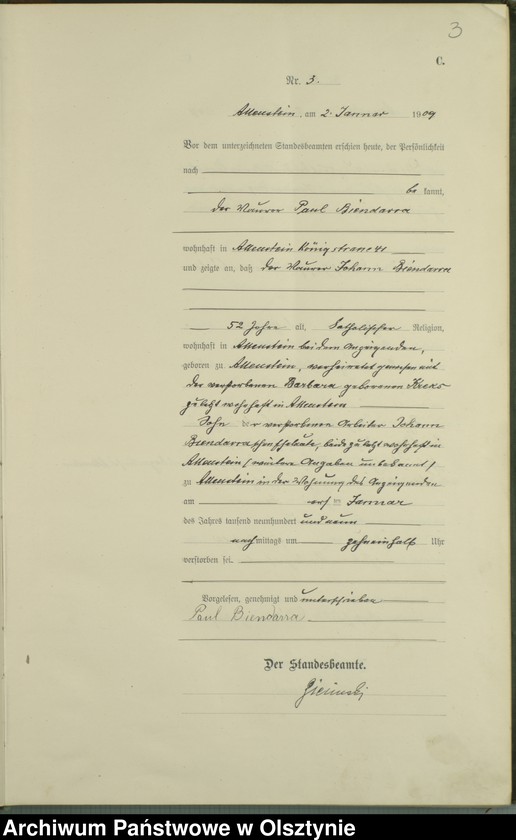 3
C.
Nr. 3.
Allenstein, am 2. Januar 1909
Vor dem unterzeichneten Standesbeamten erschien heute, der Persönlichkeit
nach
be kannt,
der Maurer Paul Biendarra
wohnhaft in Allenstein Königstrasse
und zeigte an, daß der Maurer Johann Biendarra
52 Jahre alt, katholischer Religion,
wohnhaft in Allenstein bei dem Anzeigenden,
geboren zu Allenstein, verheiratet gewesen mit
der verstorbenen Barbara geborenen
zuletzt wohnhaft in Allenstein
Sohn der verstorbenen Arbeiter Johann
Biendarra'schen Eheleute, beide zuletzt wohnhaft in
Allenstein (weitere Angaben unbekannt)
zu Allenstein in der Wohnung des Anzeigenden
am ersten Januar
des Jahres tausend neunhundert und neun
nachmittags um zehneinhalb Uhr
verstorben sei.
Vorgelesen, genehmigt und unterschrieben
Paul Biendarra
Der Standesbeamte.
Archiwum Państwowe w Olsztynie